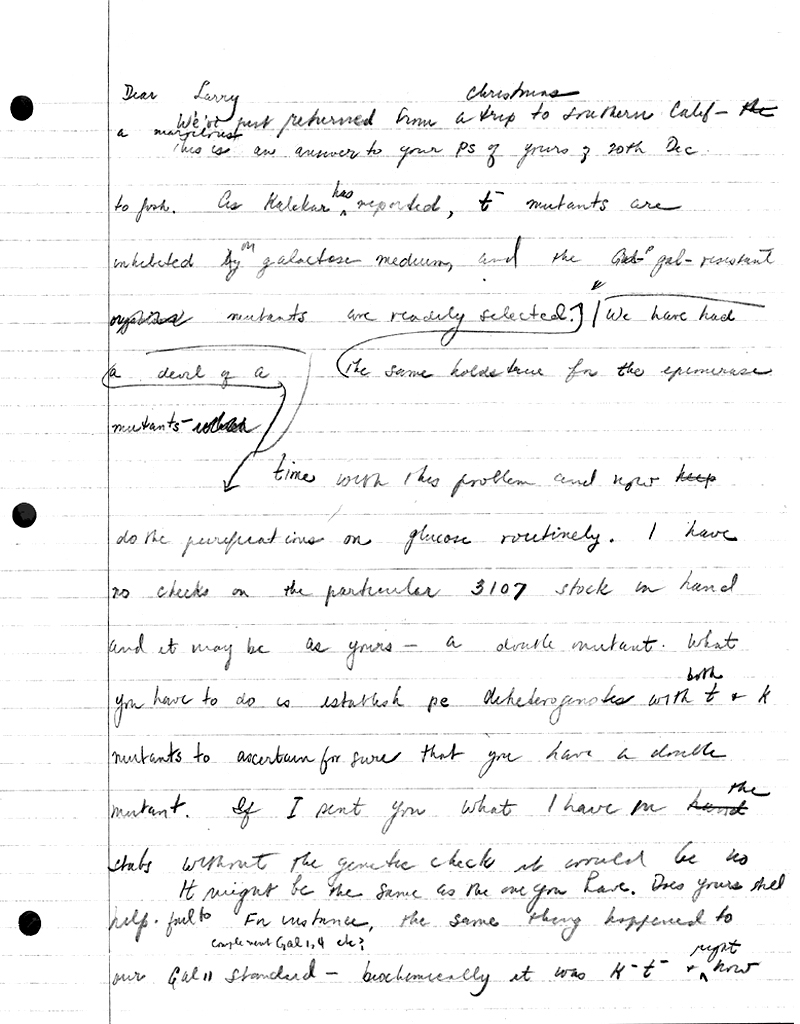 Dear Larry
Christmas
We've just returned from a trip to southern Calif - the
a marvelous
This is an answer to your PS of yours of 20th Dec.
to Josh. As Kalckar has reported, t- mutants are
inhibited by on galactose medium, and the gal-resistant
mutants are readily selected.] / We have had
a devil of a The same holds true for the epimerase
mutants -
time with this problem and now keep
do the purifications on glucose routinely. I have
no checks on the particular 3107 stock in hand
and it may be as yours - a double mutant. What
both
you have to do is establish diheterogenotes with t + k
mutants to ascertain for sure that you have a double
the
mutant. If I sent you what I have in hand
stabs without the genetic check it would be no
It might be the same as the one you have. Does yours still
help. fail to For instance, the same thing happened to
complement Gal 1, 4 etc?
right
our Gal 11 standard - biochemically it was K- t- + now